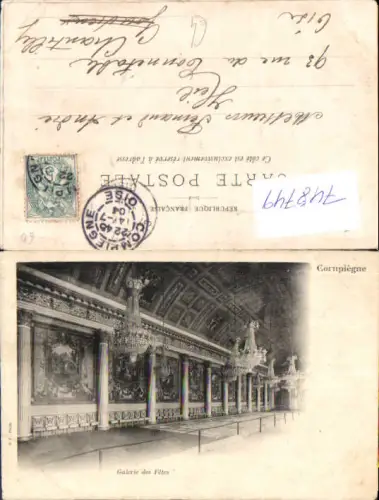 RÉPUBLIQUE FRANÇAISE
CARTE POSTALE
Ce côté est exclusivement réservé à l'adresse
Messieurs Fernand et André
Heil
93 rue du Connétable
Chantilly
Oise
COMPIEGNE
OISE
22 45
14 - 7
04
748749
Compiègne
Galerie des Fêtes